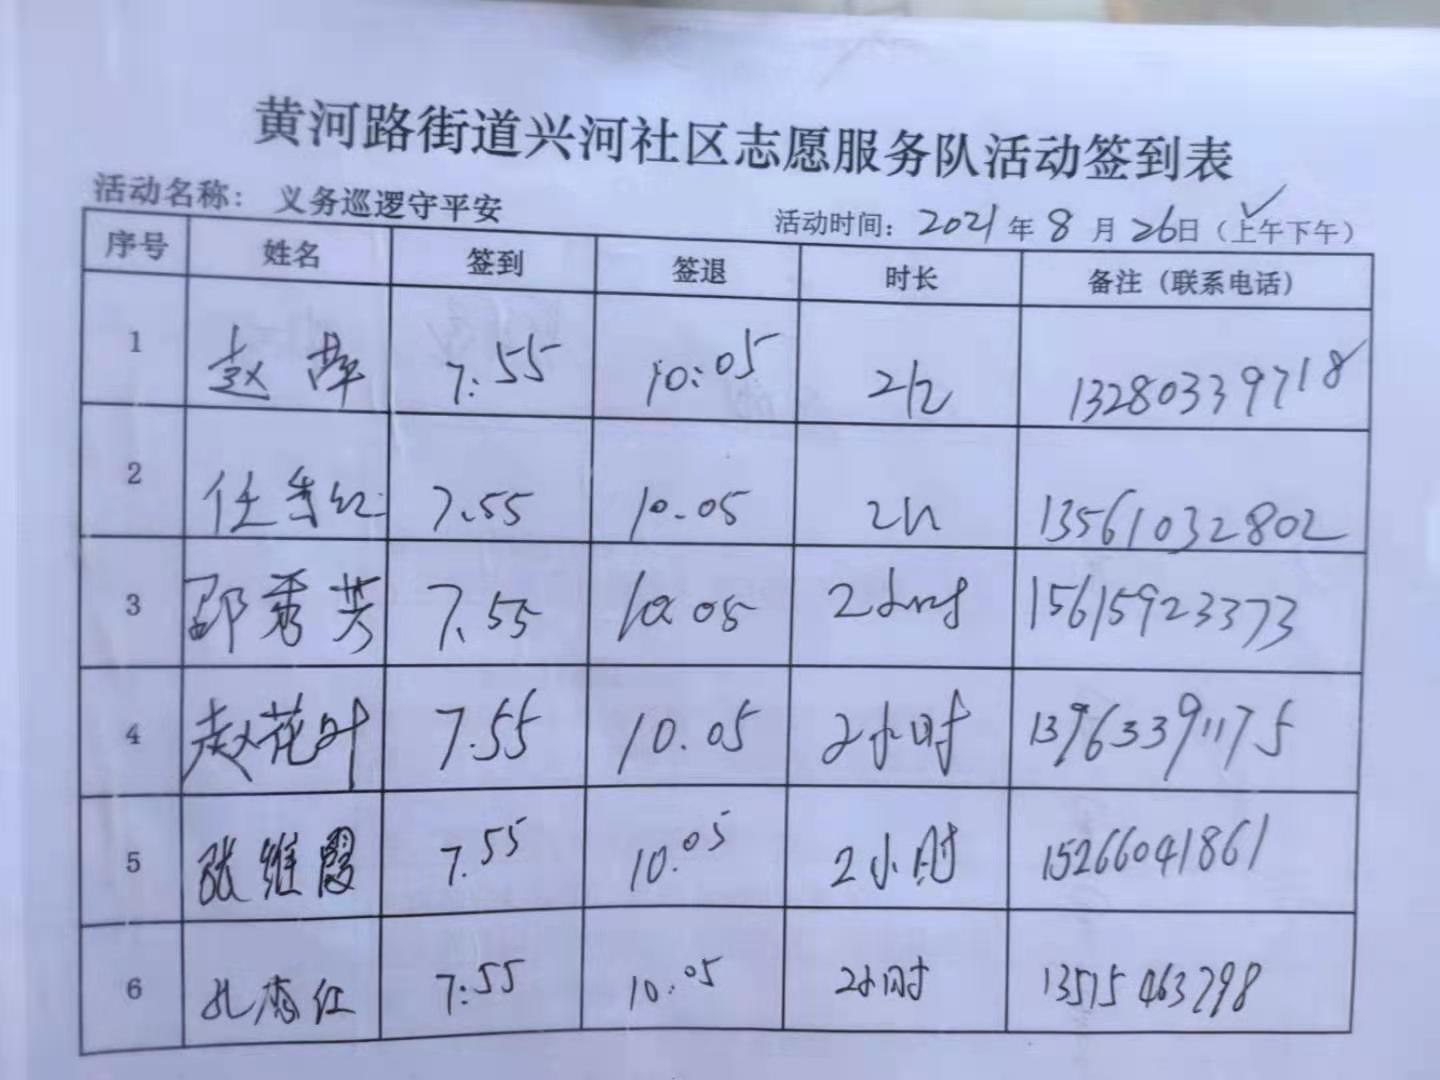 黄河路街道兴河社区志愿服务队活动签到表
活动名称： 义务巡逻守平安
活动时间：2021年8月26日（上午下午）
序号 姓名 签到 签退 时长 备注（联系电话）
1 赵萍 7:55 10:05 2h 13280339718
2 任 红 7.55 10.05 2h 13561032802
3 邵秀芳 7.55 10.05 2小时 15615923373
4 赵花叶 7.55 10.05 2小时 13963391175
5 张维霞 7.55 10.05 2小时 15266041861
6 孔 红 7:55 10:05 2小时 13515463798